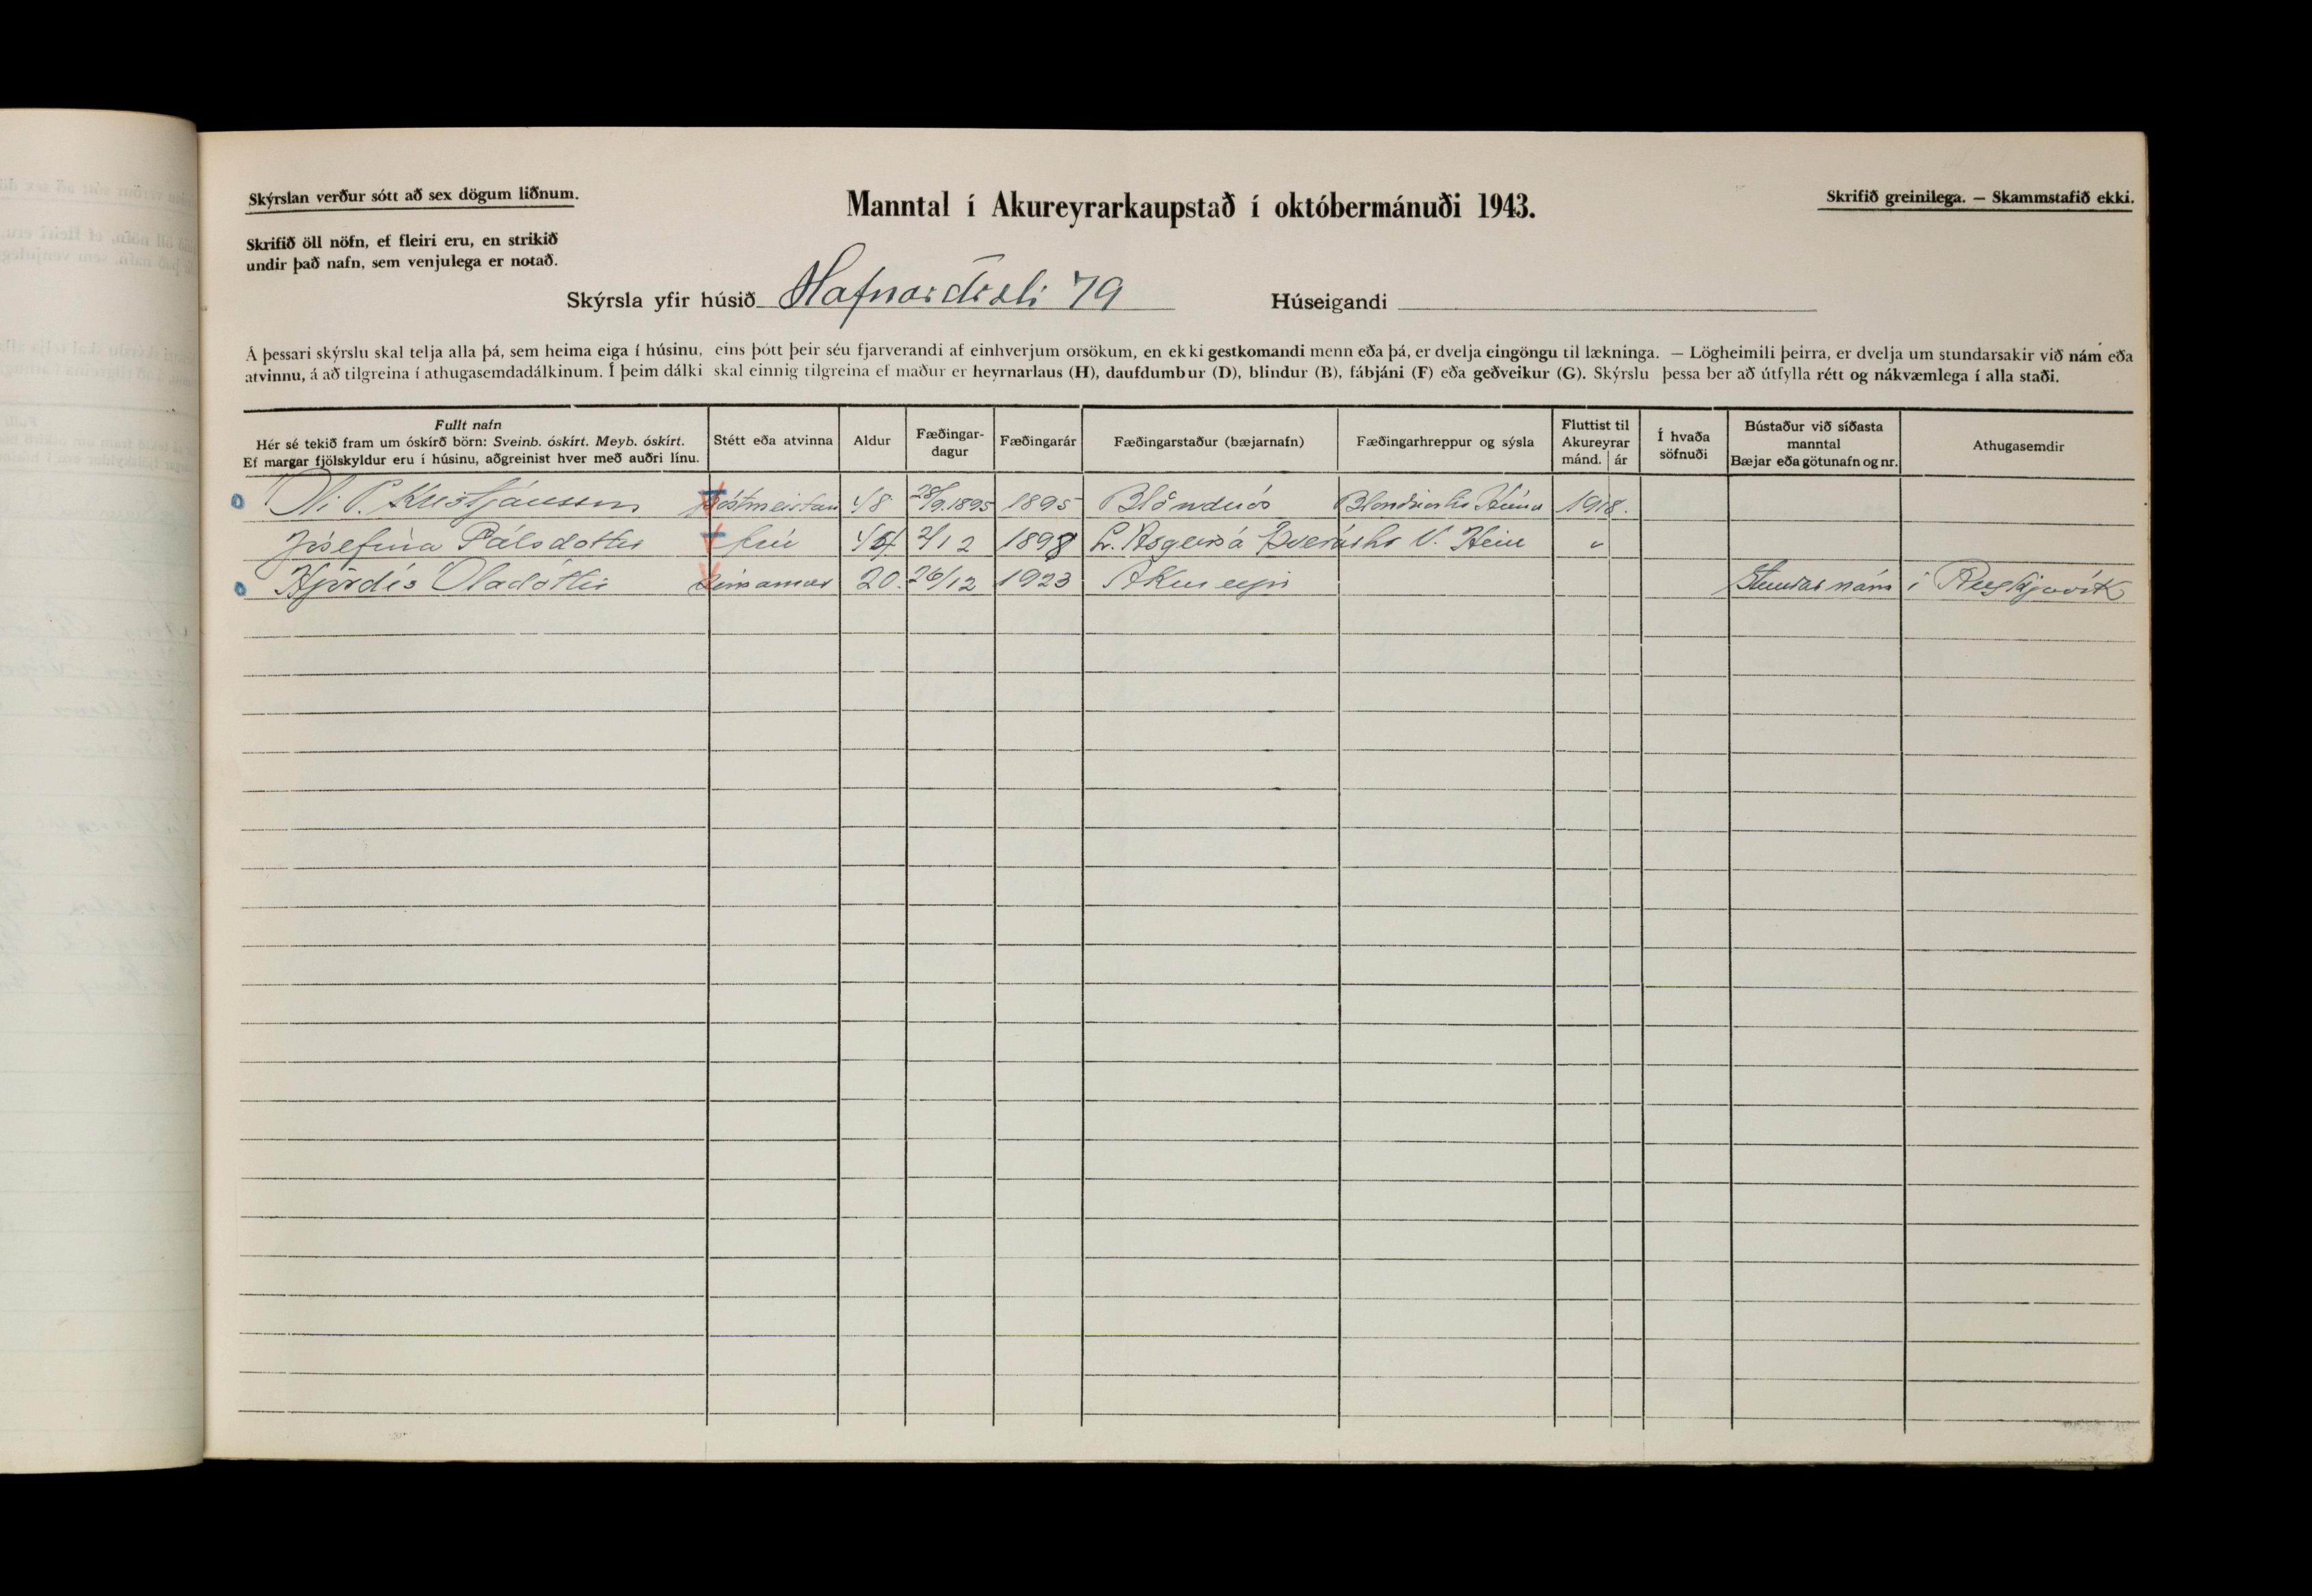 Skýrslan verður sótt að sex dögum liðnum.
Manntal í Akureyrarkaupstað í októbermánuði 1943.
Skrifið greinilega. — Skammstafið ekki.
Skrifið öll nöfn, ef fleiri eru, en strikið
undir það nafn, sem venjulega er notað.
Skýrsla yfir húsið Hafnarstræti 79 Húseigandi
Á þessari skýrslu skal telja alla þá, sem heima eiga í húsinu, eins þótt þeir séu fjarverandi af einhverjum orsökum, en ekki gestkomandi menn eða þá, er dvelja eingöngu til lækninga. — Lögheimili þeirra, er dvelja um stundarsakir við nám eða
atvinnu, á að tilgreina í athugasemdadálkinum. Í þeim dálki skal einnig tilgreina ef maður er heyrnarlaus (H), daufdumbur (D), blindur (B), fábjáni (F) eða geðveikur (G). Skýrslu þessa ber að útfylla rétt og nákvæmlega í alla staði.
Fullt nafn
Hér sé tekið fram um óskírð börn: Sveinb. óskírt. Meyb. óskírt.
Ef margar fjölskyldur eru í húsinu, aðgreinist hver með auðri línu.
Stétt eða atvinna
Aldur
Fæðingar-
dagur
Fæðingarár
Fæðingarstaður (bæjarnafn)
Fæðingarhreppur og sýsla
Fluttist til
Akureyrar
mánd. ár
Í hvaða
söfnuði
Bústaður við síðasta
manntal
Bæjar eða götunafn og nr.
Athugasemdir
Óli P. Kristjánsson Póstmeistari 48 28/9.1895 1895 Blönduós 1918.
Jósefína Pálsdóttir frú 2/12 1898 Ásgeirsá V. Hún "
Hjördís Óladóttir 20. 26/12 1923 Akureyri Stundar nám í Reykjavík